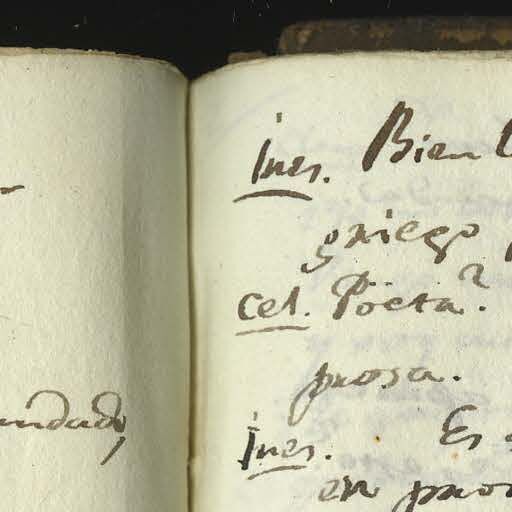 undado,
Ines. Bien
griego
cel. Poeta?
prosa.
Ines. Es
en pro